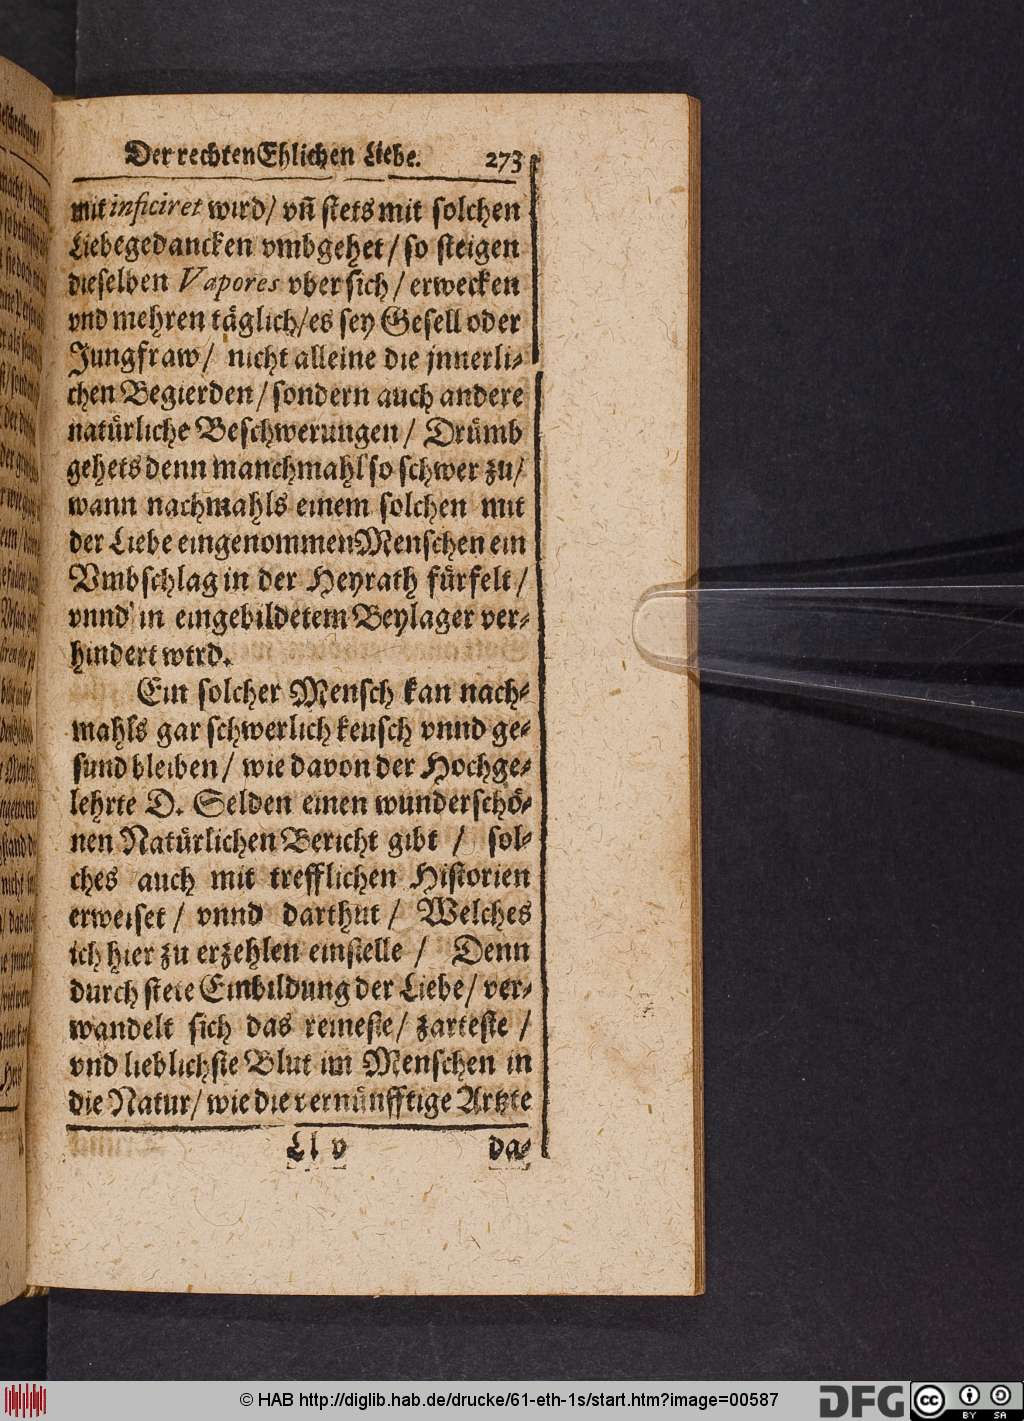 Der rechten Ehlichen Liebe. 273
mit inficiret wird/ vñ stets mit solchen
Liebegedancken vmbgehet/ so steigen
dieselben Vapores vber sich/ erwecken
vnd mehren täglich/ es sey Gesell oder
Jungfraw/ nicht alleine die jnnerli-
chen Begierden/ sondern auch andere
natürliche Beschwerungen/ Drümb
gehets denn manchmahl so schwer zu/
wann nachmahls einem solchen mit
der Liebe eingenommen Menschen ein
Vmbschlag in der Heyrath fürfelt/
vnnd in eingebildetem Beylager ver-
hindert wird.
Ein solcher Mensch kan nach-
mahls gar schwerlich keusch vnnd ge-
sund bleiben/ wie davon der Hochge-
lehrte D. Selden einen wunderschö-
nen Natürlichen Bericht gibt/ sol-
ches auch mit trefflichen Historien
erweiset/ vnnd darthut/ Welches
ich hier zu erzehlen einstelle/ Denn
durch stete Einbildung der Liebe/ ver-
wandelt sich das reineste/ zarteste/
vnd lieblichste Blut im Menschen in
die Natur/ wie die vernünfftige Artzte
Ll v da-
© HAB http://diglib.hab.de/drucke/61-eth-1s/start.htm?image=00587
DFG
cc BY SA